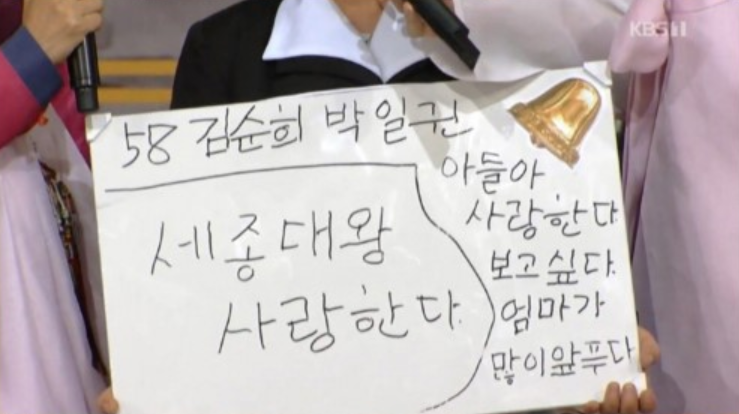 KBS1
58 김순희 박일권
세종대왕
사랑한다.
아들아
사랑한다
보고싶다.
엄마가
많이앞푸다